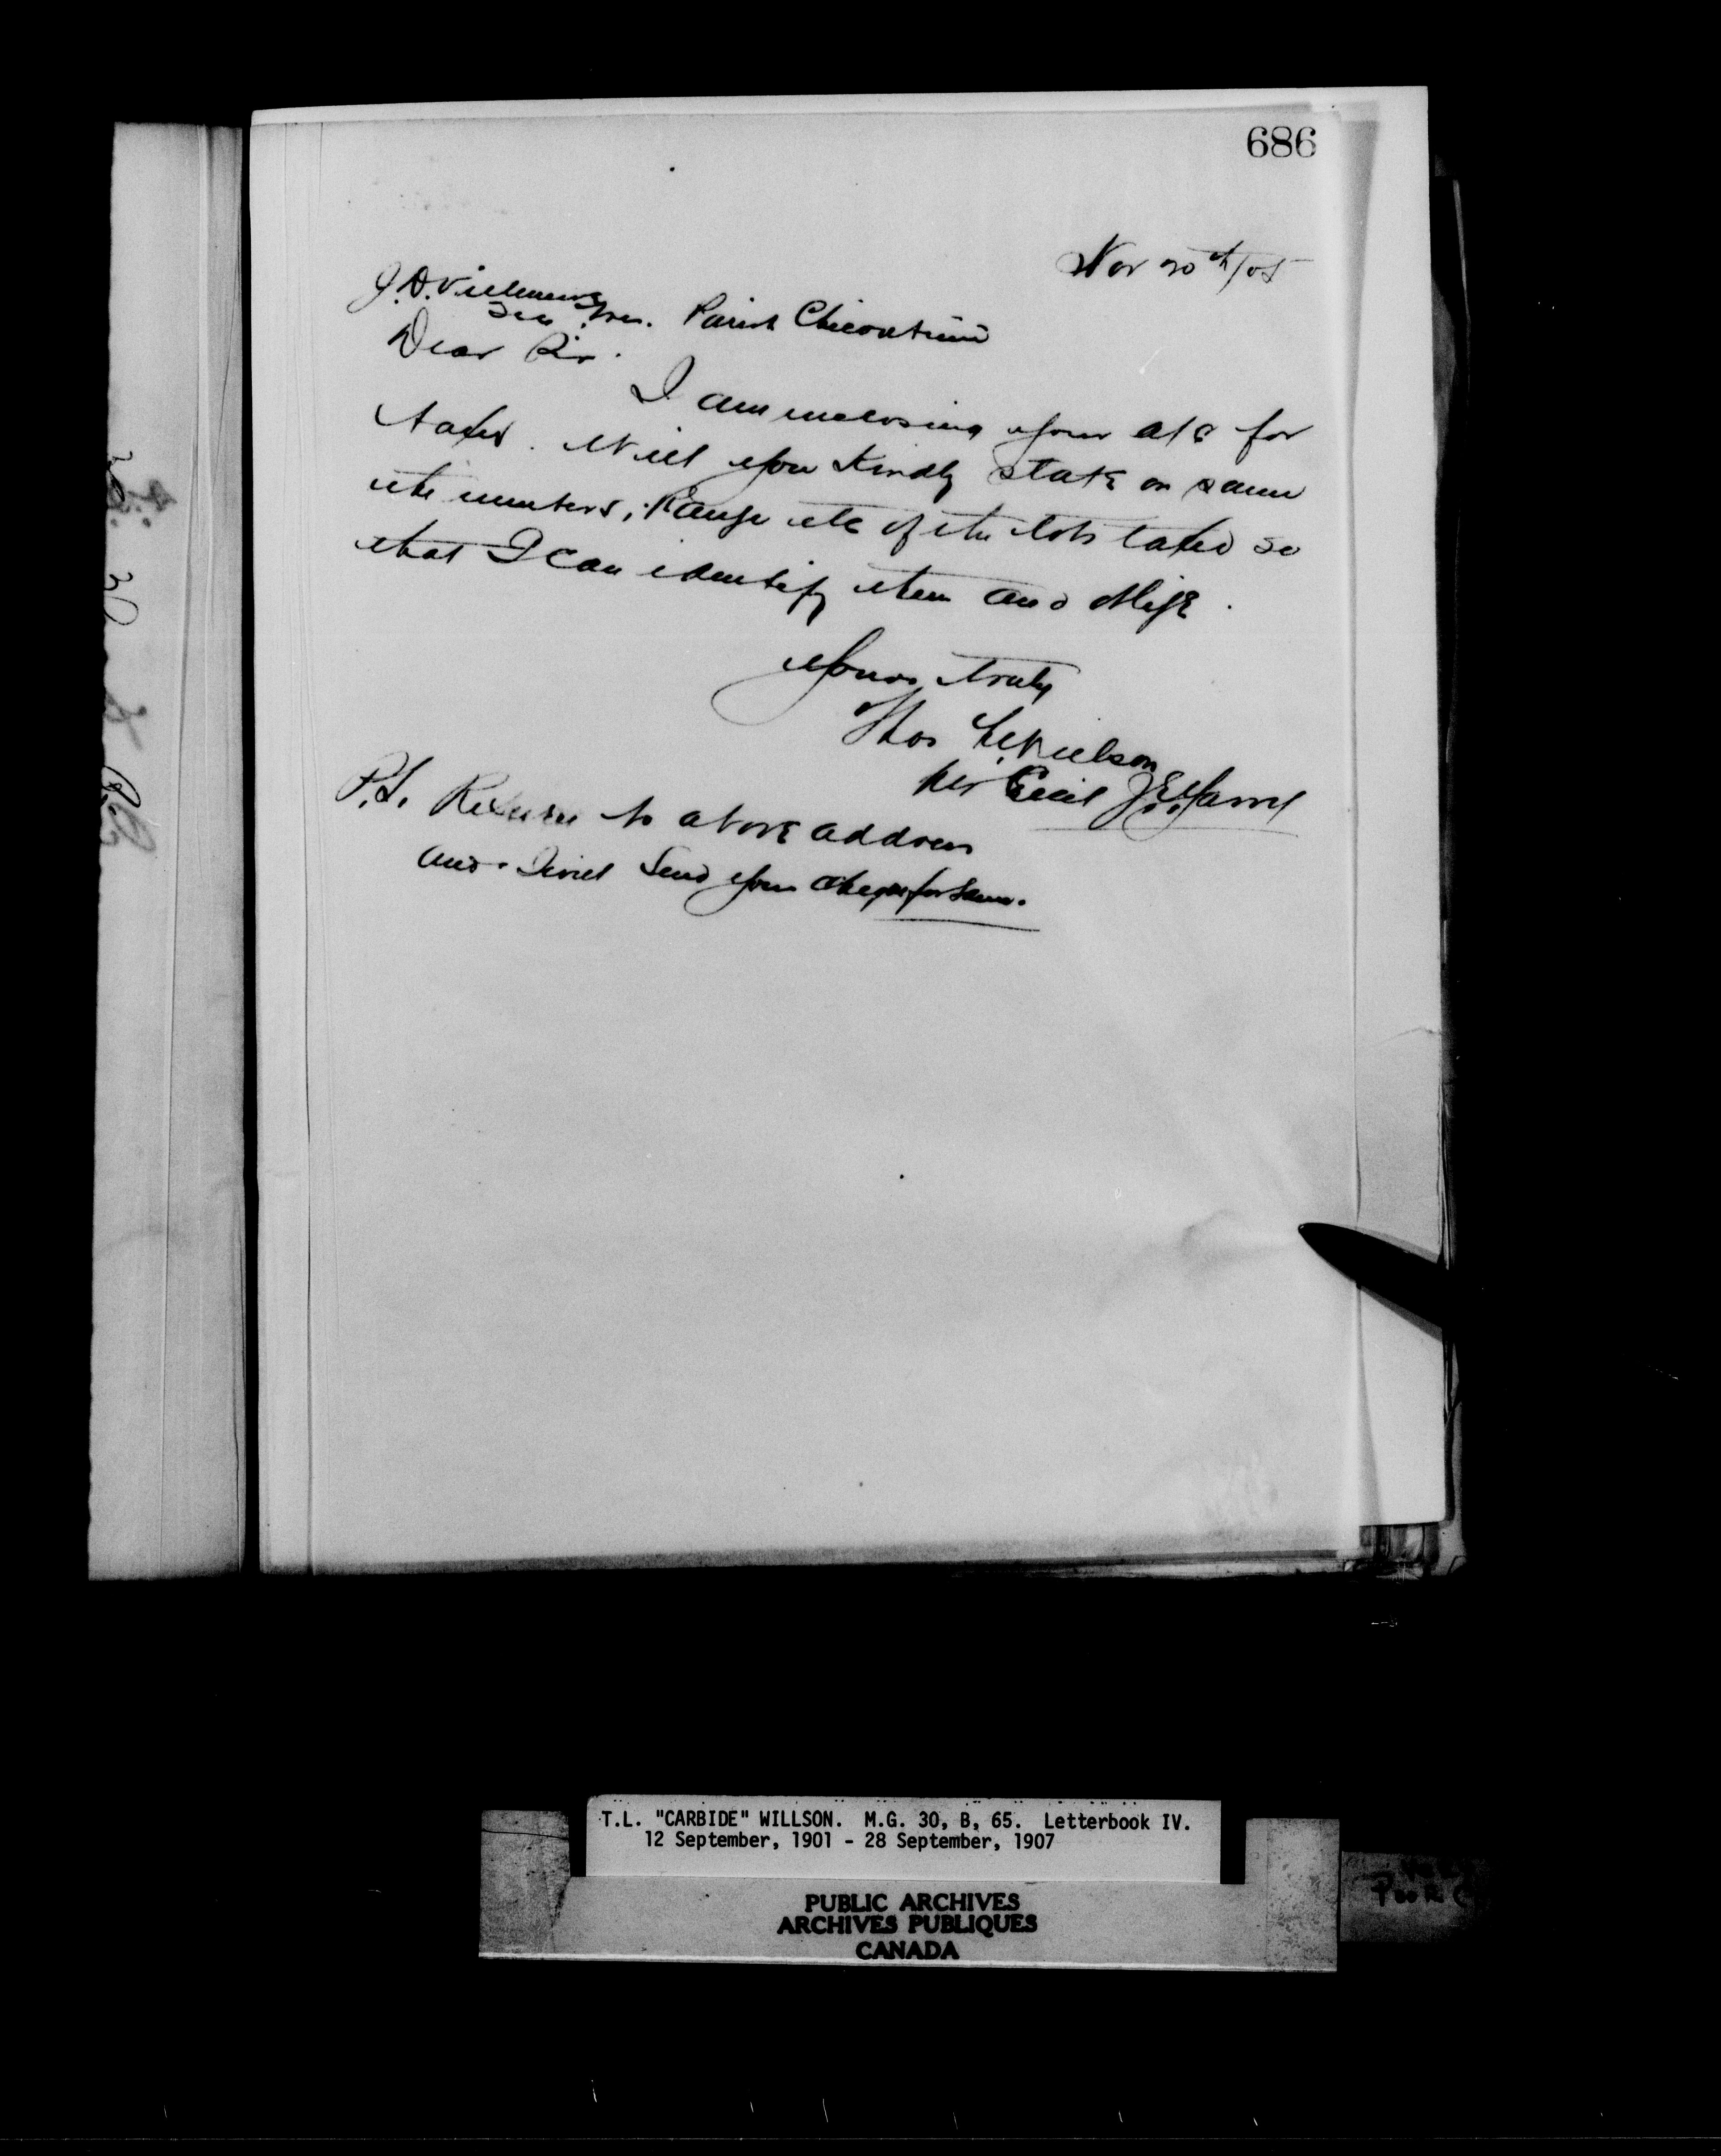 686
Nov 20th/05
J.D. Villeneuve
Sec Tres. Parish Chicoutimi
Dear Sir.
I am inclosing your a/c for
taxes. Will you kindly state on same
the numbers, Range etc of the lots taxed so
that I can identify them and oblige.
Yours truly
Thos L. Willson
per Cecil
P.S. Return to above address
and I will send you cheque for same.
T.L. "CARBIDE" WILLSON. M.G. 30, B, 65. Letterbook IV.
12 September, 1901 - 28 September, 1907
PUBLIC ARCHIVES
ARCHIVES PUBLIQUES
CANADA